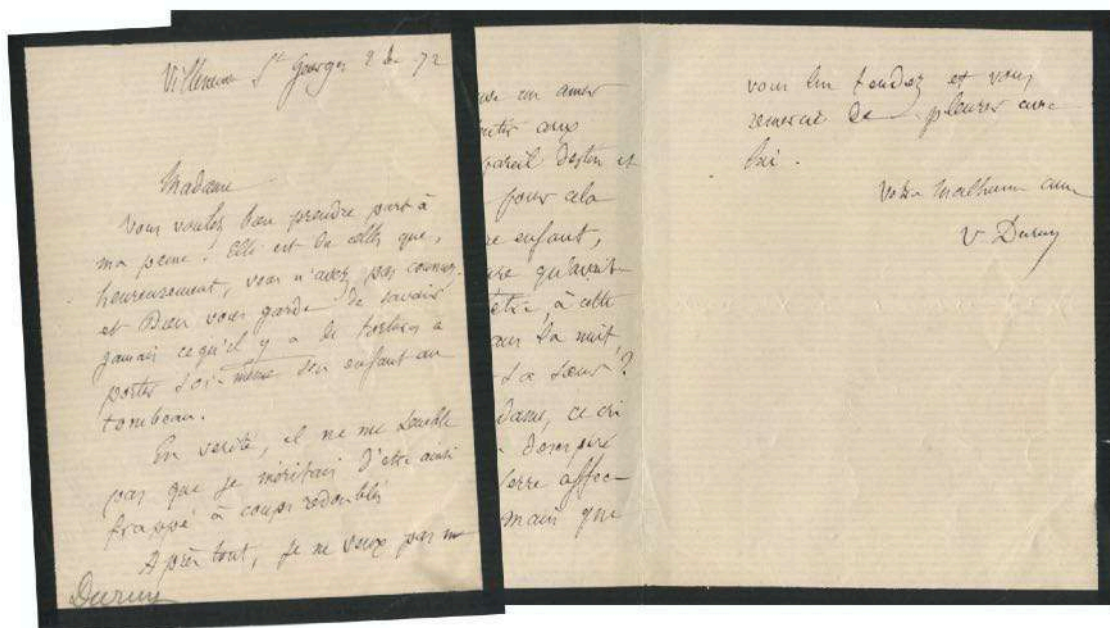 Villeneuve St Georges 2 Xe 72
Madame
Vous voulez bien prendre part à
ma peine. Elle est de celles que,
heureusement, vous n'avez pas connues.
et Dieu vous garde de savoir
jamais ce qu'il y a de tortures à
porter soi-même son enfant au
tombeau.
En vérité, il ne me semble
pas que je méritais d'être ainsi
frappé à coups redoublés
Après tout, je ne veux pas m
Duruy
un amer
aux
pareil destin et
pour cela
enfant,
qu'avait
être, à cette
la nuit,
sa soeur?
dame, ce cri
désespéré
serre affec-
main que
vous lui tendez et vous
remercie de pleurer avec
lui.
Votre malheureux ami
V Duruy